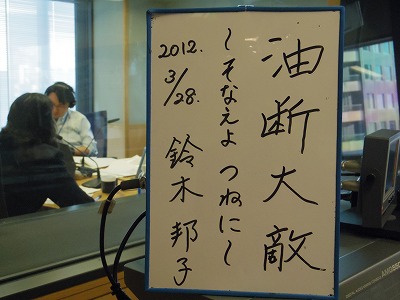 油断大敵
～そなえよ つねに～
2012.
3/28.
鈴木邦子